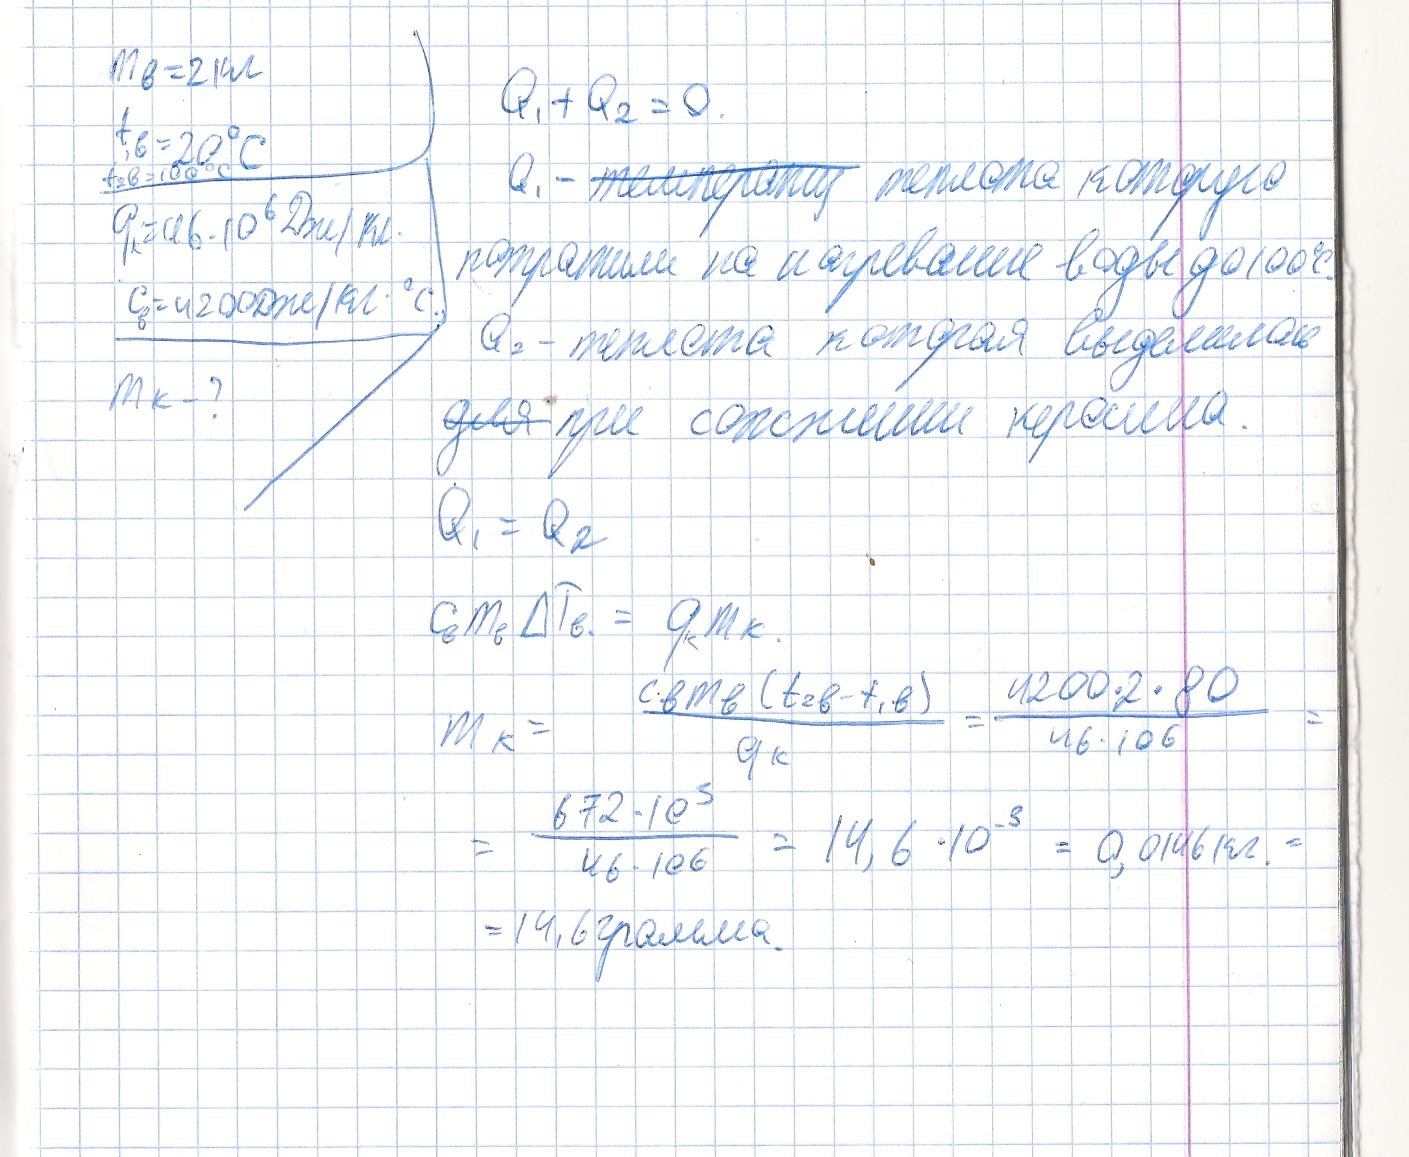 mв=2кг
t₁в=20°C
t₂в=100°C
qк=46·10⁶Дж/кг.
cв=4200Дж/кг·°C.
mк-?
Q₁+Q₂=0.
Q₁- температу теплота которую
потратили на нагревание воды до 100°C.
Q₂- теплота которая выделилась
для при сожжении керосина.
Q₁ = Q₂
cвmвΔTв. = qкmк.
mк = cвmв(t₂в-t₁в)/qк = 4200·2·80/46·10⁶ =
= 672·10³/46·10⁶ = 14,6·10⁻³ = 0,0146кг. =
=14,6грамма.